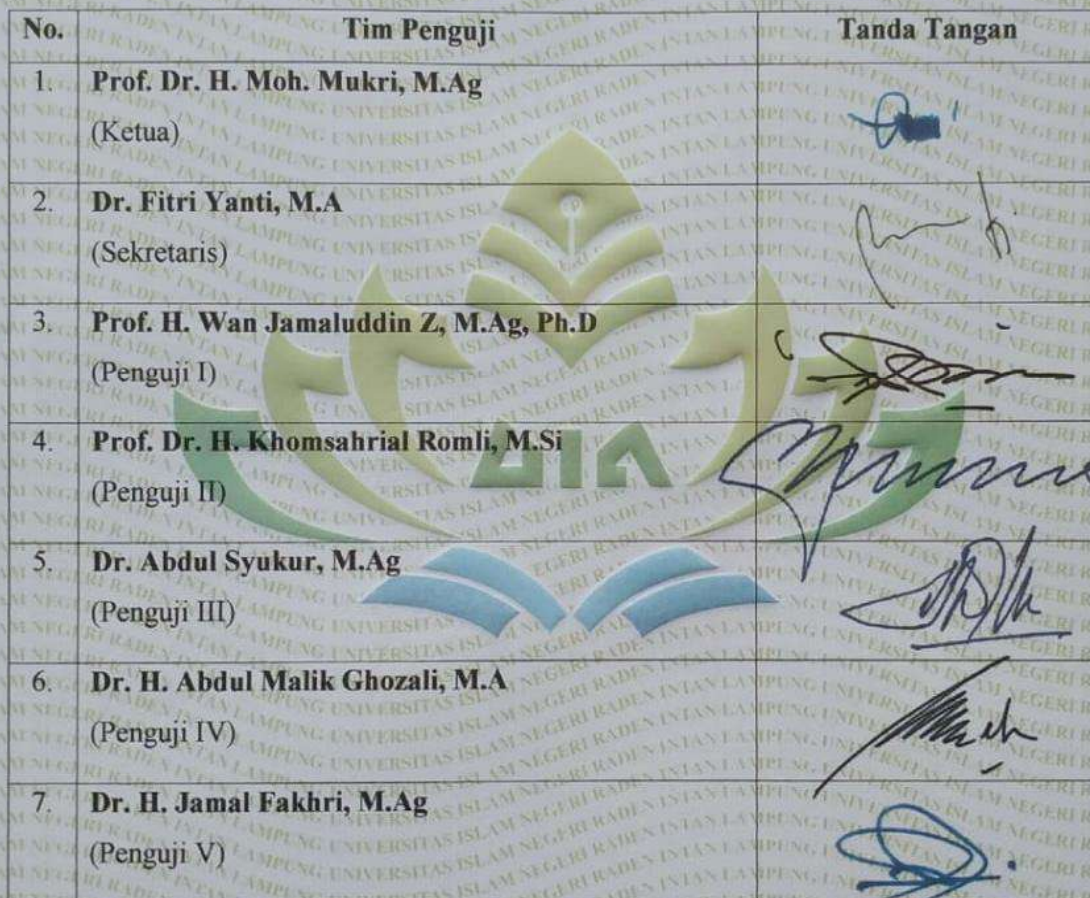 No. Tim Penguji Tanda Tangan
1. Prof. Dr. H. Moh. Mukri, M.Ag
(Ketua)
2. Dr. Fitri Yanti, M.A
(Sekretaris)
3. Prof. H. Wan Jamaluddin Z, M.Ag, Ph.D
(Penguji I)
4. Prof. Dr. H. Khomsahrial Romli, M.Si
(Penguji II)
5. Dr. Abdul Syukur, M.Ag
(Penguji III)
6. Dr. H. Abdul Malik Ghozali, M.A
(Penguji IV)
7. Dr. H. Jamal Fakhri, M.Ag
(Penguji V)